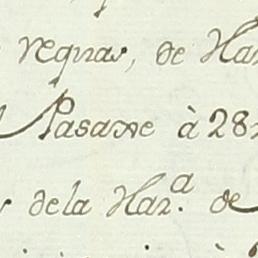 regnar, de Har
Pasaxe à 28
de la Har.ª de